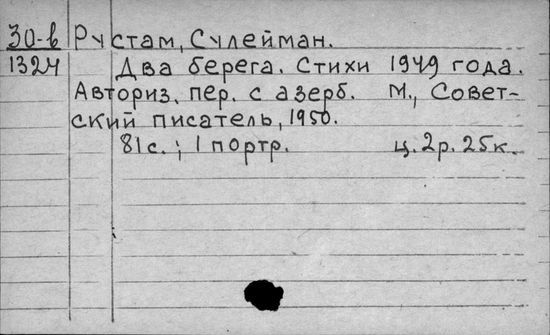 30-в Рустам, Сулейман.
1324 Два берега. Стихи 1949 года.
Авториз. пер. с азерб. М., Совет-
ский писатель, 1950.
81 с.; 1 портр. ц. 2р. 25к.